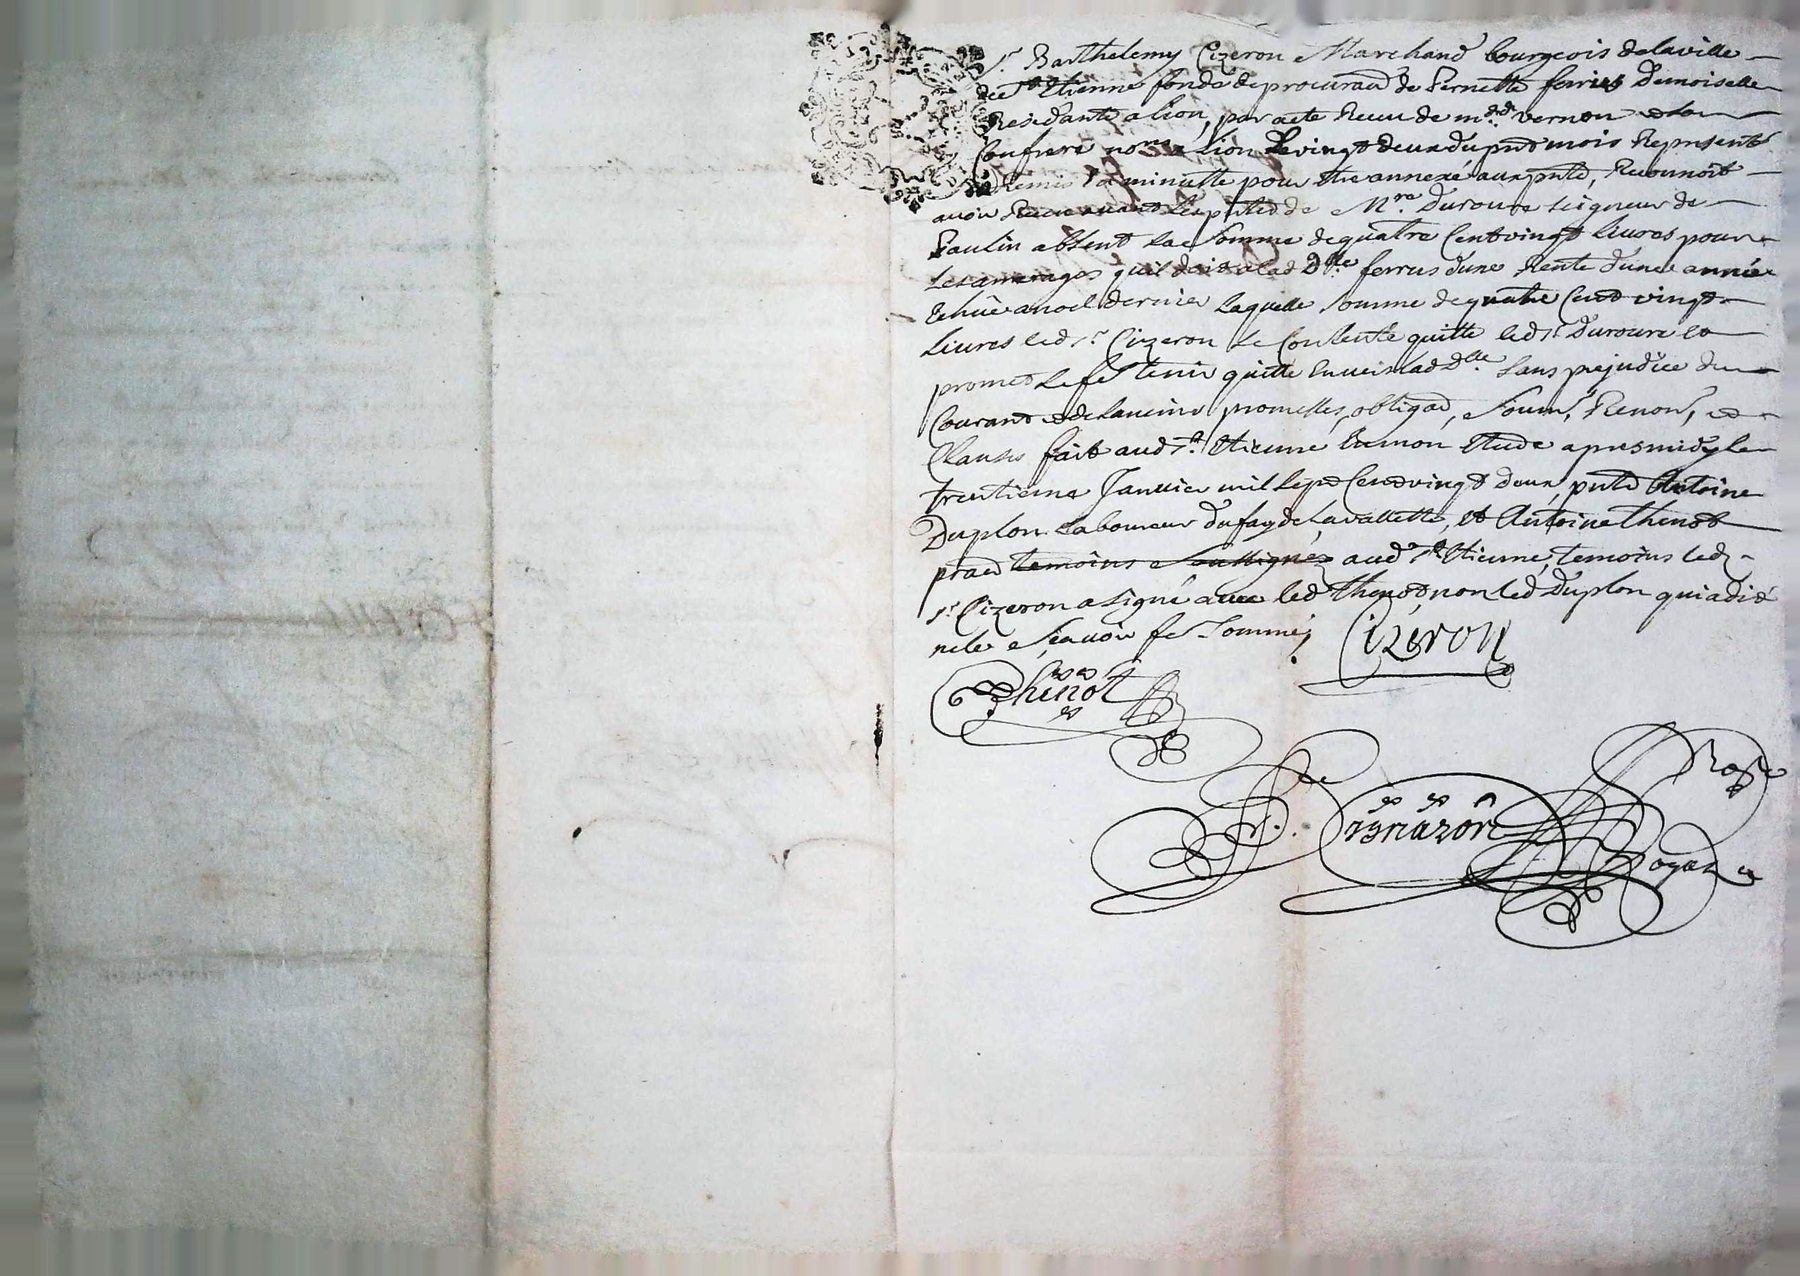 Sr. Barthelemy Cizeron Marchand bourgeois delaville
de St Etienne fondé deprocurãon de Pernette ferrus Demoiselle
Residante a lion, par acte Recu de me vernon et son
Confrere nores a Lion Levingt deux du pnt mois Represente
Remis a minutte pour Etre annexé aux pntes, Reconnoit
avoir Receu avant les pntes de Mre. Duroure seigneur de
Paulin absent La Somme de quatre Cent vingt livres pour
Les arrerages quil doit a lad Dlle ferrus dune Rente dune année
Echüe a noel dernier Laquelle Somme de quatre Cent vingt
Livres led sr. Cizeron Se Contente quitte led sr Duroure et
promet Le fe. tenir quitte Envers lad Dlle. Sans prejudice du
Courant et de promesses, obligaõ, Soum, Renons, et
Clauses fait aud St. Etienne En mon Etude apresmidy le
trentieme Janvier mil Sept Cent vingt deux, pnts Antoine
Duplon Laboureur du fay de Lavallette, et Antoine thenot
pratt temoins Soussignés aud St Etienne, temoins led
sr Cizeron a signé avec led thenot non led Duplon qui a dit
ne le Scavoir fe Sommé,
Cizeron
Thenot
Pignazon
Royal